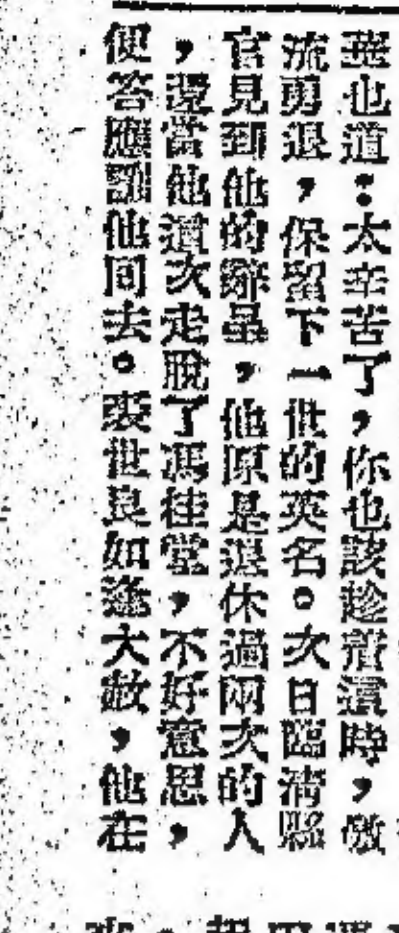 丟也道：太辛苦了，你也該趁着這時，激
流勇退，保留下一世的英名。次日臨清縣
官見到他的辭呈，他原是退休過兩次的人
，還當他這次走脫了馮桂堂，不好意思，
便答應讓他回去。裴世良如逢大赦，他在